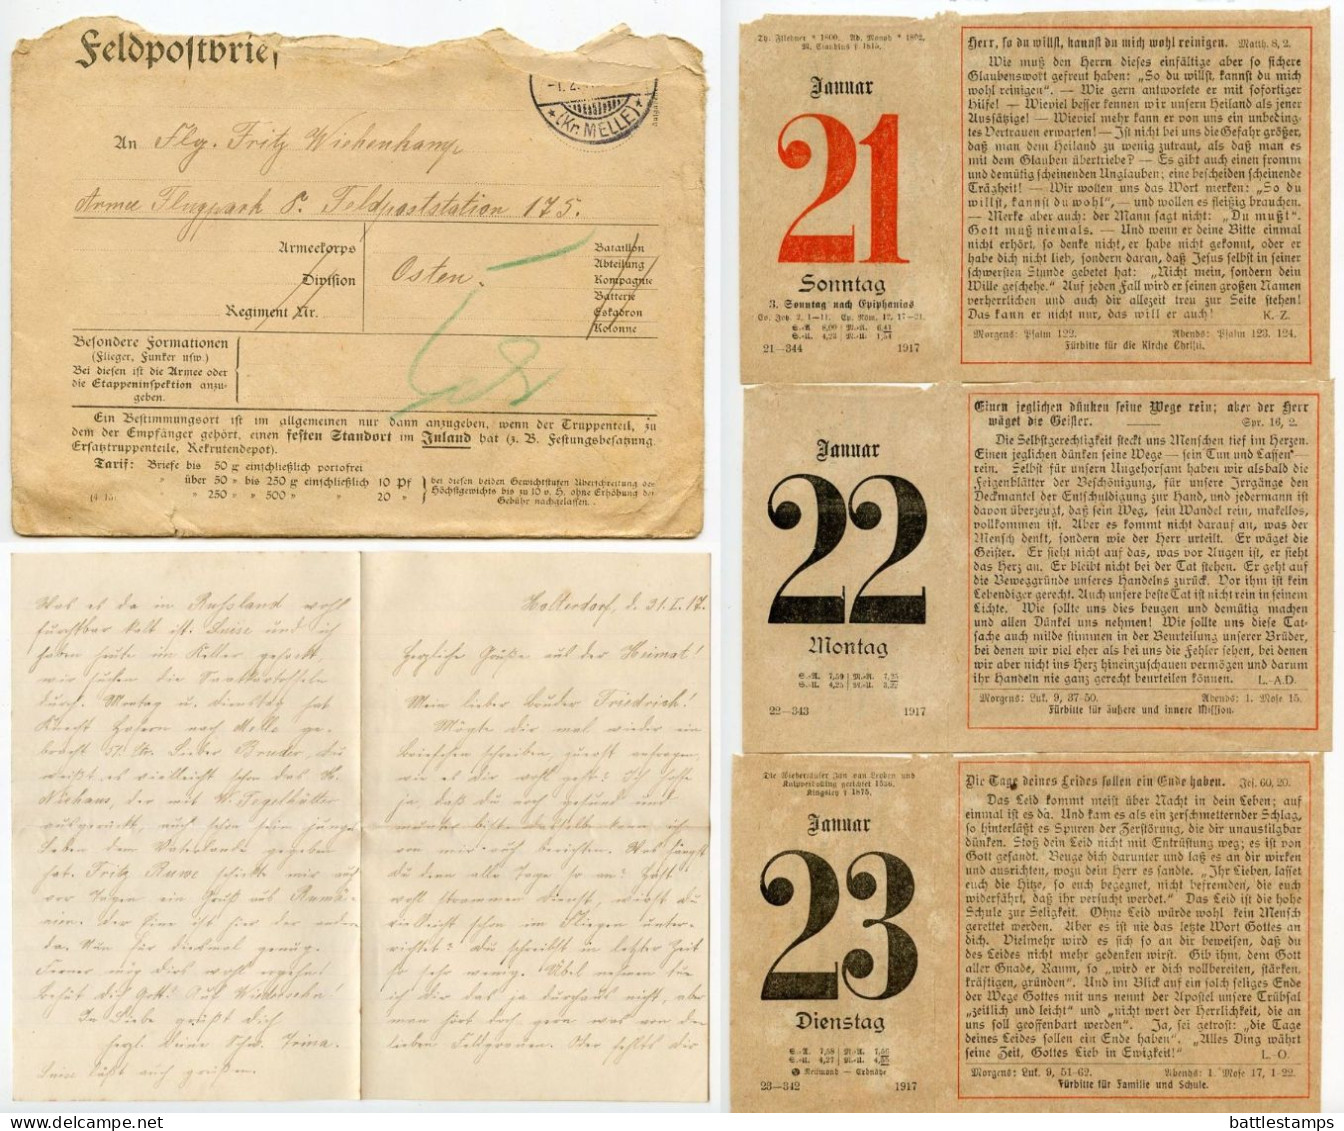 Feldpostbrief
(Kr. MELLE)
An Flg. Fritz Wiehenkamp
Armee Flugpark 8. Feldpoststation 175.
Armeekorps
Division
Regiment Nr.
Osten.
Bataillon
Abteilung
Kompagnie
Batterie
Eskadron
Kolonne
Besondere Formationen
(Flieger, Funker usw.)
Bei diesen ist die Armee oder
die Etappeninspektion anzu-
geben.
Ein Bestimmungsort ist im allgemeinen nur dann anzugeben, wenn der Truppenteil, zu
dem der Empfänger gehört, einen festen Standort im Inland hat (z. B. Festungsbesatzung,
Ersatztruppenteile, Rekrutendepot).
Tarif: Briefe bis 50 g einschließlich portofrei
„ über 50 „ bis 250 g einschließlich 10 Pf
„ „ 250 „ „ 500 „ „ 20 „
bei diesen beiden Gewichtstufen Überschreitung des
Höchstgewichts bis zu 10 v. H. ohne Erhöhung der
Gebühr nachgelassen.
Was es da in Russland wohl
furchtbar kalt ist. Luise und ich
haben heute im Keller gehockt,
wir suchen die Saatkartoffeln
durch. Montag u. Dienstag hat
Knecht Hafern nach Melle ge-
bracht 51 Str. Lieber Bruder, du
weißt es vielleicht schon das H.
Niehaus, der mit W. Tegelhütter
ausgerückt, auch schon sein junges
Leben dem Vaterlande gegeben
hat. Fritz Ruwe schickte mir auch
vor Tagen ein Gruß aus Rumä-
nien. der Eine ist hier der andere
da. Nun für diesmal genug.
Ferner mög dirs wohl ergehn!
behüt dich Gott! Auf Wiedersehn!
In Liebe grüßt dich
herzl. Deine Schw. Trina.
Luise läßt auch grüßen.
Holterdorf, d. 31.I.17.
Herzliche Grüße aus der Heimat!
Mein lieber Bruder Friedrich!
Möchte dir mal wieder ein
Briefchen schreiben, zuerst anfragen
wie es dir wohl geht? Ich hoffe
ja, daß du noch gesund und
munter bist dasselbe kann ich
von mir auch berichten. Was fängst
du denn alle Tage so an? Habt
wohl strammen Dienst, wirst du
vielleicht schon im Fliegen unter-
richtet? Du schreibst in letzter Zeit
so sehr wenig. Übel nehmen tue
ich dir das ja durchaus nicht, aber
man hört doch gern was von den
lieben Feldgrauen. Oder fehlts dir
Th. Fliedner * 1800. Ad. Monod * 1802.
M. Claudius † 1815.
Januar
21
Sonntag
3. Sonntag nach Epiphanias
Ev. Joh. 2, 1—11. Ep. Röm. 12, 17—21.
S.-A. 8,00 M.-A. 6,41
S.-U. 4,23 M.-U. 1,54
21—344 1917
Herr, so du willst, kannst du mich wohl reinigen. Matth. 8, 2.
Wie muß den Herrn dieses einfältige aber so sichere
Glaubenswort gefreut haben: „So du willst, kannst du mich
wohl reinigen“. — Wie gern antwortete er mit sofortiger
Hilfe! — Wieviel besser kennen wir unsern Heiland als jener
Aussätzige! — Wieviel mehr kann er von uns ein unbeding-
tes Vertrauen erwarten! — Ist nicht bei uns die Gefahr größer,
daß man dem Heiland zu wenig zutraut, als daß man es
mit dem Glauben übertriebe? — Es gibt auch einen fromm
und demütig scheinenden Unglauben; eine bescheiden scheinende
Trägheit! — Wir wollen uns das Wort merken: „So du
willst, kannst du wohl“, — und wollen es fleißig brauchen.
— Merke aber auch: der Mann sagt nicht: „Du mußt“.
Gott muß niemals. — Und wenn er deine Bitte einmal
nicht erhört, so denke nicht, er habe nicht gekonnt, oder er
habe dich nicht lieb, sondern daran, daß Jesus selbst in seiner
schwersten Stunde gebetet hat: „Nicht mein, sondern dein
Wille geschehe.“ Auf jeden Fall wird er seinen großen Namen
verherrlichen und auch dir allezeit treu zur Seite stehen!
Das kann er nicht nur, das will er auch! K.-Z.
Morgens: Psalm 122. Abends: Psalm 123. 124.
Fürbitte für die Kirche Christi.
Januar
22
Montag
S.-A. 7,59 M.-A. 7,25
S.-U. 4,25 M.-U. 3,22
22—343 1917
Einen jeglichen dünken seine Wege rein; aber der Herr
wäget die Geister. Spr. 16, 2.
Die Selbstgerechtigkeit steckt uns Menschen tief im Herzen.
Einen jeglichen dünken seine Wege — sein Tun und Lassen —
rein. Selbst für unsern Ungehorsam haben wir alsbald die
Feigenblätter der Beschönigung, für unsre Irrgänge den
Deckmantel der Entschuldigung zur Hand, und jedermann ist
davon überzeugt, daß sein Weg, sein Wandel rein, makellos,
vollkommen ist. Aber es kommt nicht darauf an, was der
Mensch denkt, sondern wie der Herr urteilt. Er wäget die
Geister. Er sieht nicht auf das, was vor Augen ist, er sieht
das Herz an. Er bleibt nicht bei der Tat stehen. Er geht auf
die Beweggründe unseres Handelns zurück. Vor ihm ist kein
Lebendiger gerecht. Auch unsre beste Tat ist nicht rein in seinem
Lichte. Wie sollte uns dies beugen und demütig machen
und allen Dünkel uns nehmen! Wie sollte uns diese Tat-
sache auch milde stimmen in der Beurteilung unserer Brüder,
bei denen wir viel eher als bei uns die Fehler sehen, bei denen
wir aber nicht ins Herz hineinzuschauen vermögen und darum
ihr Handeln nie ganz gerecht beurteilen können. L.-A.D.
Morgens: Luk. 9, 37-50. Abends: 1. Mose 15.
Fürbitte für äußere und innere Mission.
Die Wiedertäufer Jan van Leyden und
Knipperdolling gerichtet 1536.
Kingsley † 1875.
Januar
23
Dienstag
S.-A. 7,58 M.-A. 7,56
S.-U. 4,27 M.-U.
Neumond — Erdnähe
23—342 1917
Die Tage deines Leides sollen ein Ende haben. Jes. 60, 20.
Das Leid kommt meist über Nacht in dein Leben; auf
einmal ist es da. Und kam es als ein zerschmetternder Schlag,
so hinterläßt es Spuren der Zerstörung, die dir unaustilgbar
dünken. Stoß dein Leid nicht mit Entrüstung weg; es ist von
Gott gesandt. Beuge dich darunter und laß es an dir wirken
und ausrichten, wozu dein Herr es sandte. „Ihr Lieben, lasset
euch die Hitze, so euch begegnet, nicht befremden, die euch
widerfährt, daß ihr versucht werdet.“ Das Leid ist die hohe
Schule zur Seligkeit. Ohne Leid würde wohl kein Mensch
gerettet werden. Aber es ist nie das letzte Wort Gottes an
dich. Vielmehr wird es sich so an dir beweisen, daß du
des Leides nicht mehr gedenken wirst. Gib ihm, dem Gott
aller Gnade, Raum, so „wird er dich vollbereiten, stärken,
kräftigen, gründen“. Und im Blick auf ein solch seliges Ende
der Wege Gottes mit uns nennt der Apostel unsre Trübsal
„zeitlich und leicht“ und „nicht wert der Herrlichkeit, die an
uns soll geoffenbart werden“. Ja, sei getrost: „die Tage
deines Leides sollen ein Ende haben“. „Alles Ding währt
seine Zeit, Gottes Lieb in Ewigkeit!“ L.-O.
Morgens: Luk. 9, 51-62. Abends: 1. Mose 17, 1-22.
Fürbitte für Familie und Schule.
battlestamps